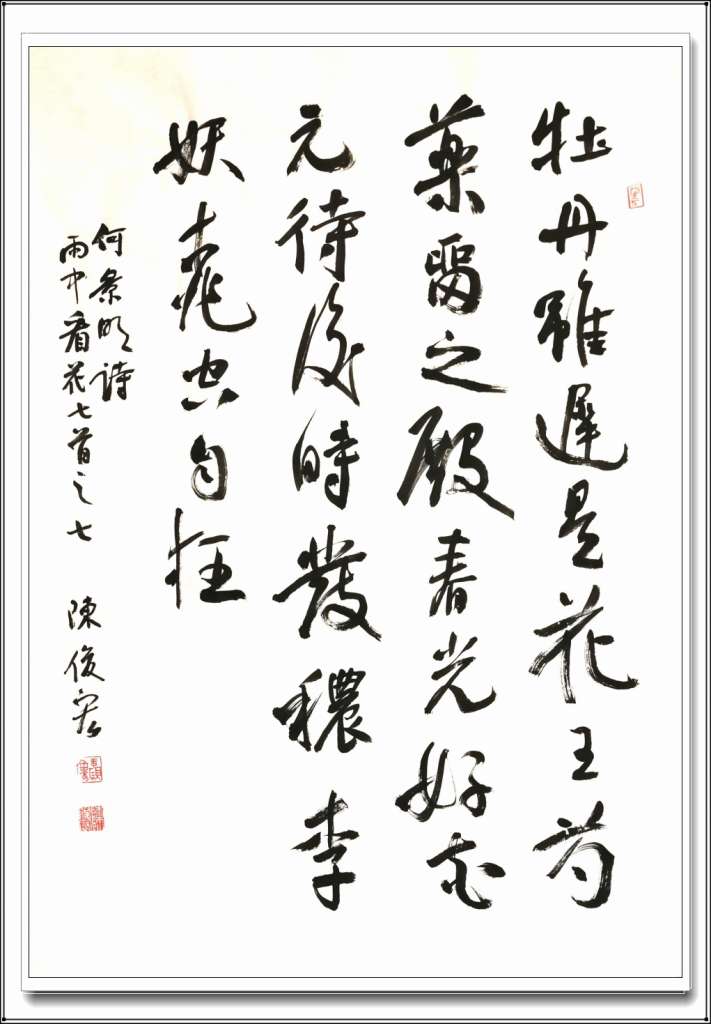 牡丹雖遲是花王芍
藥留之殿春光好花
元待後時發穠李
妖桃空自狂
何景明詩
雨中看花七首之七 陳俊宏